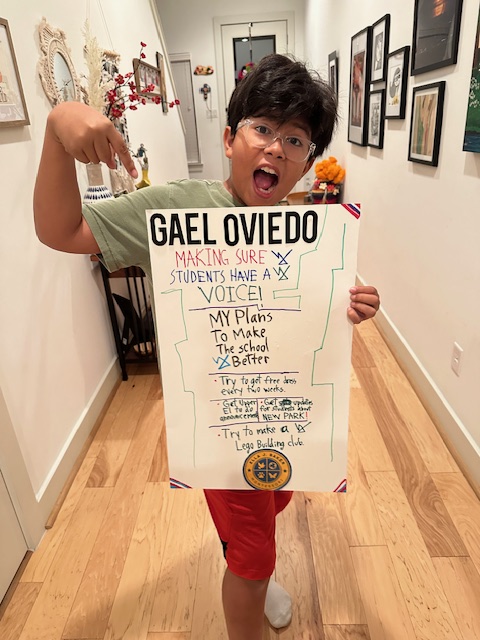 GAEL OVIEDO
MAKING SURE
STUDENTS HAVE A
VOICE!
MY Plans
To Make
The school
Better
• Try to get free dress
every two weeks.
• Get Upper
El to do
announcements
• Get updates
for students about
NEW PARK!
• Try to make a
Lego Building club.